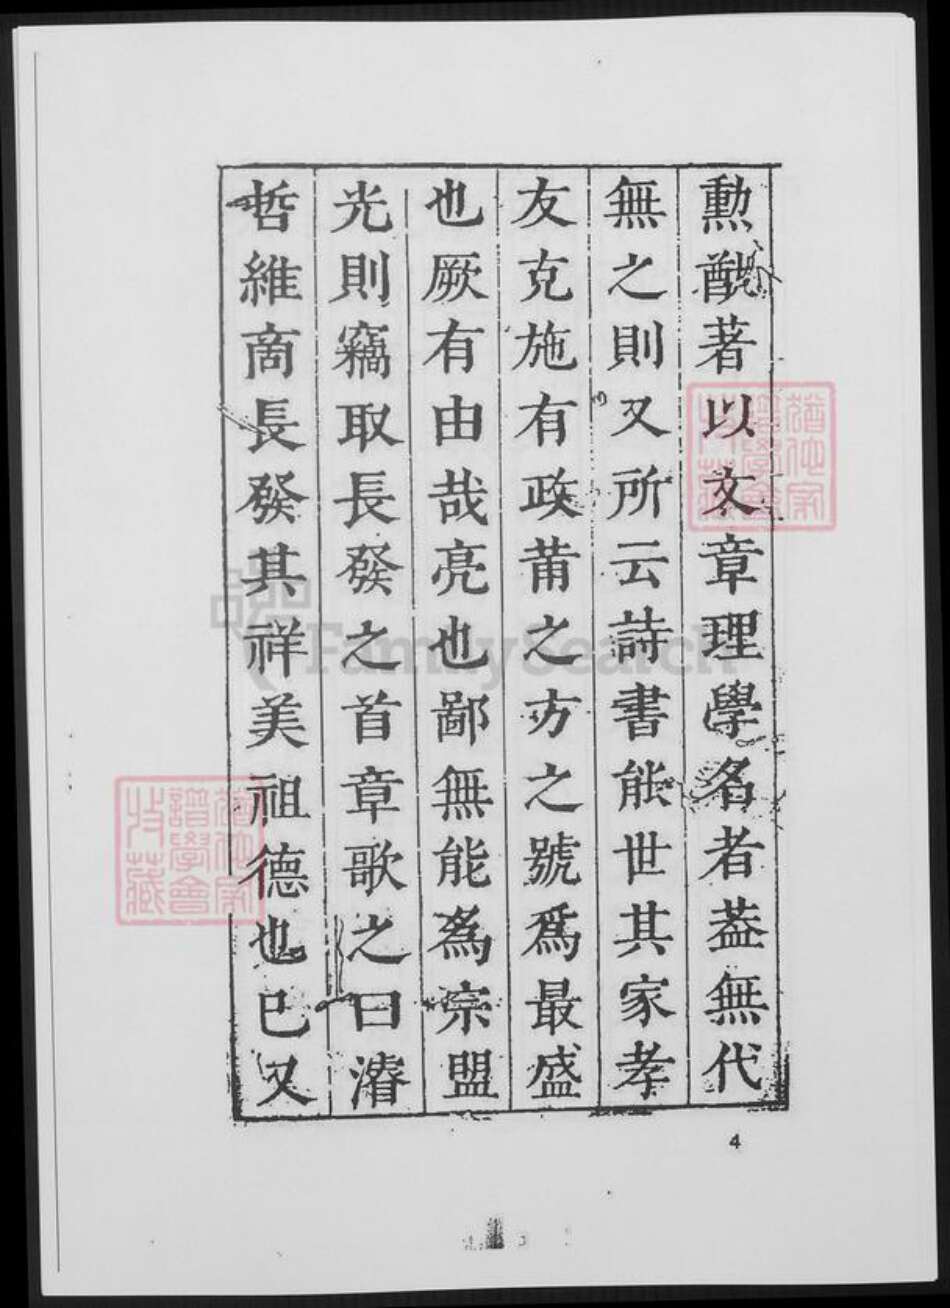 勳猷著以文章理學名者葢無代
無之則又所云詩書能世其家孝
友克施有政莆之方之號爲最盛
也厥有由哉亮也鄙無能爲宗盟
光則竊取長發之首章歌之曰濬
哲維商長發其祥美祖德也已又
4
譜學會
收藏
FamilySearch